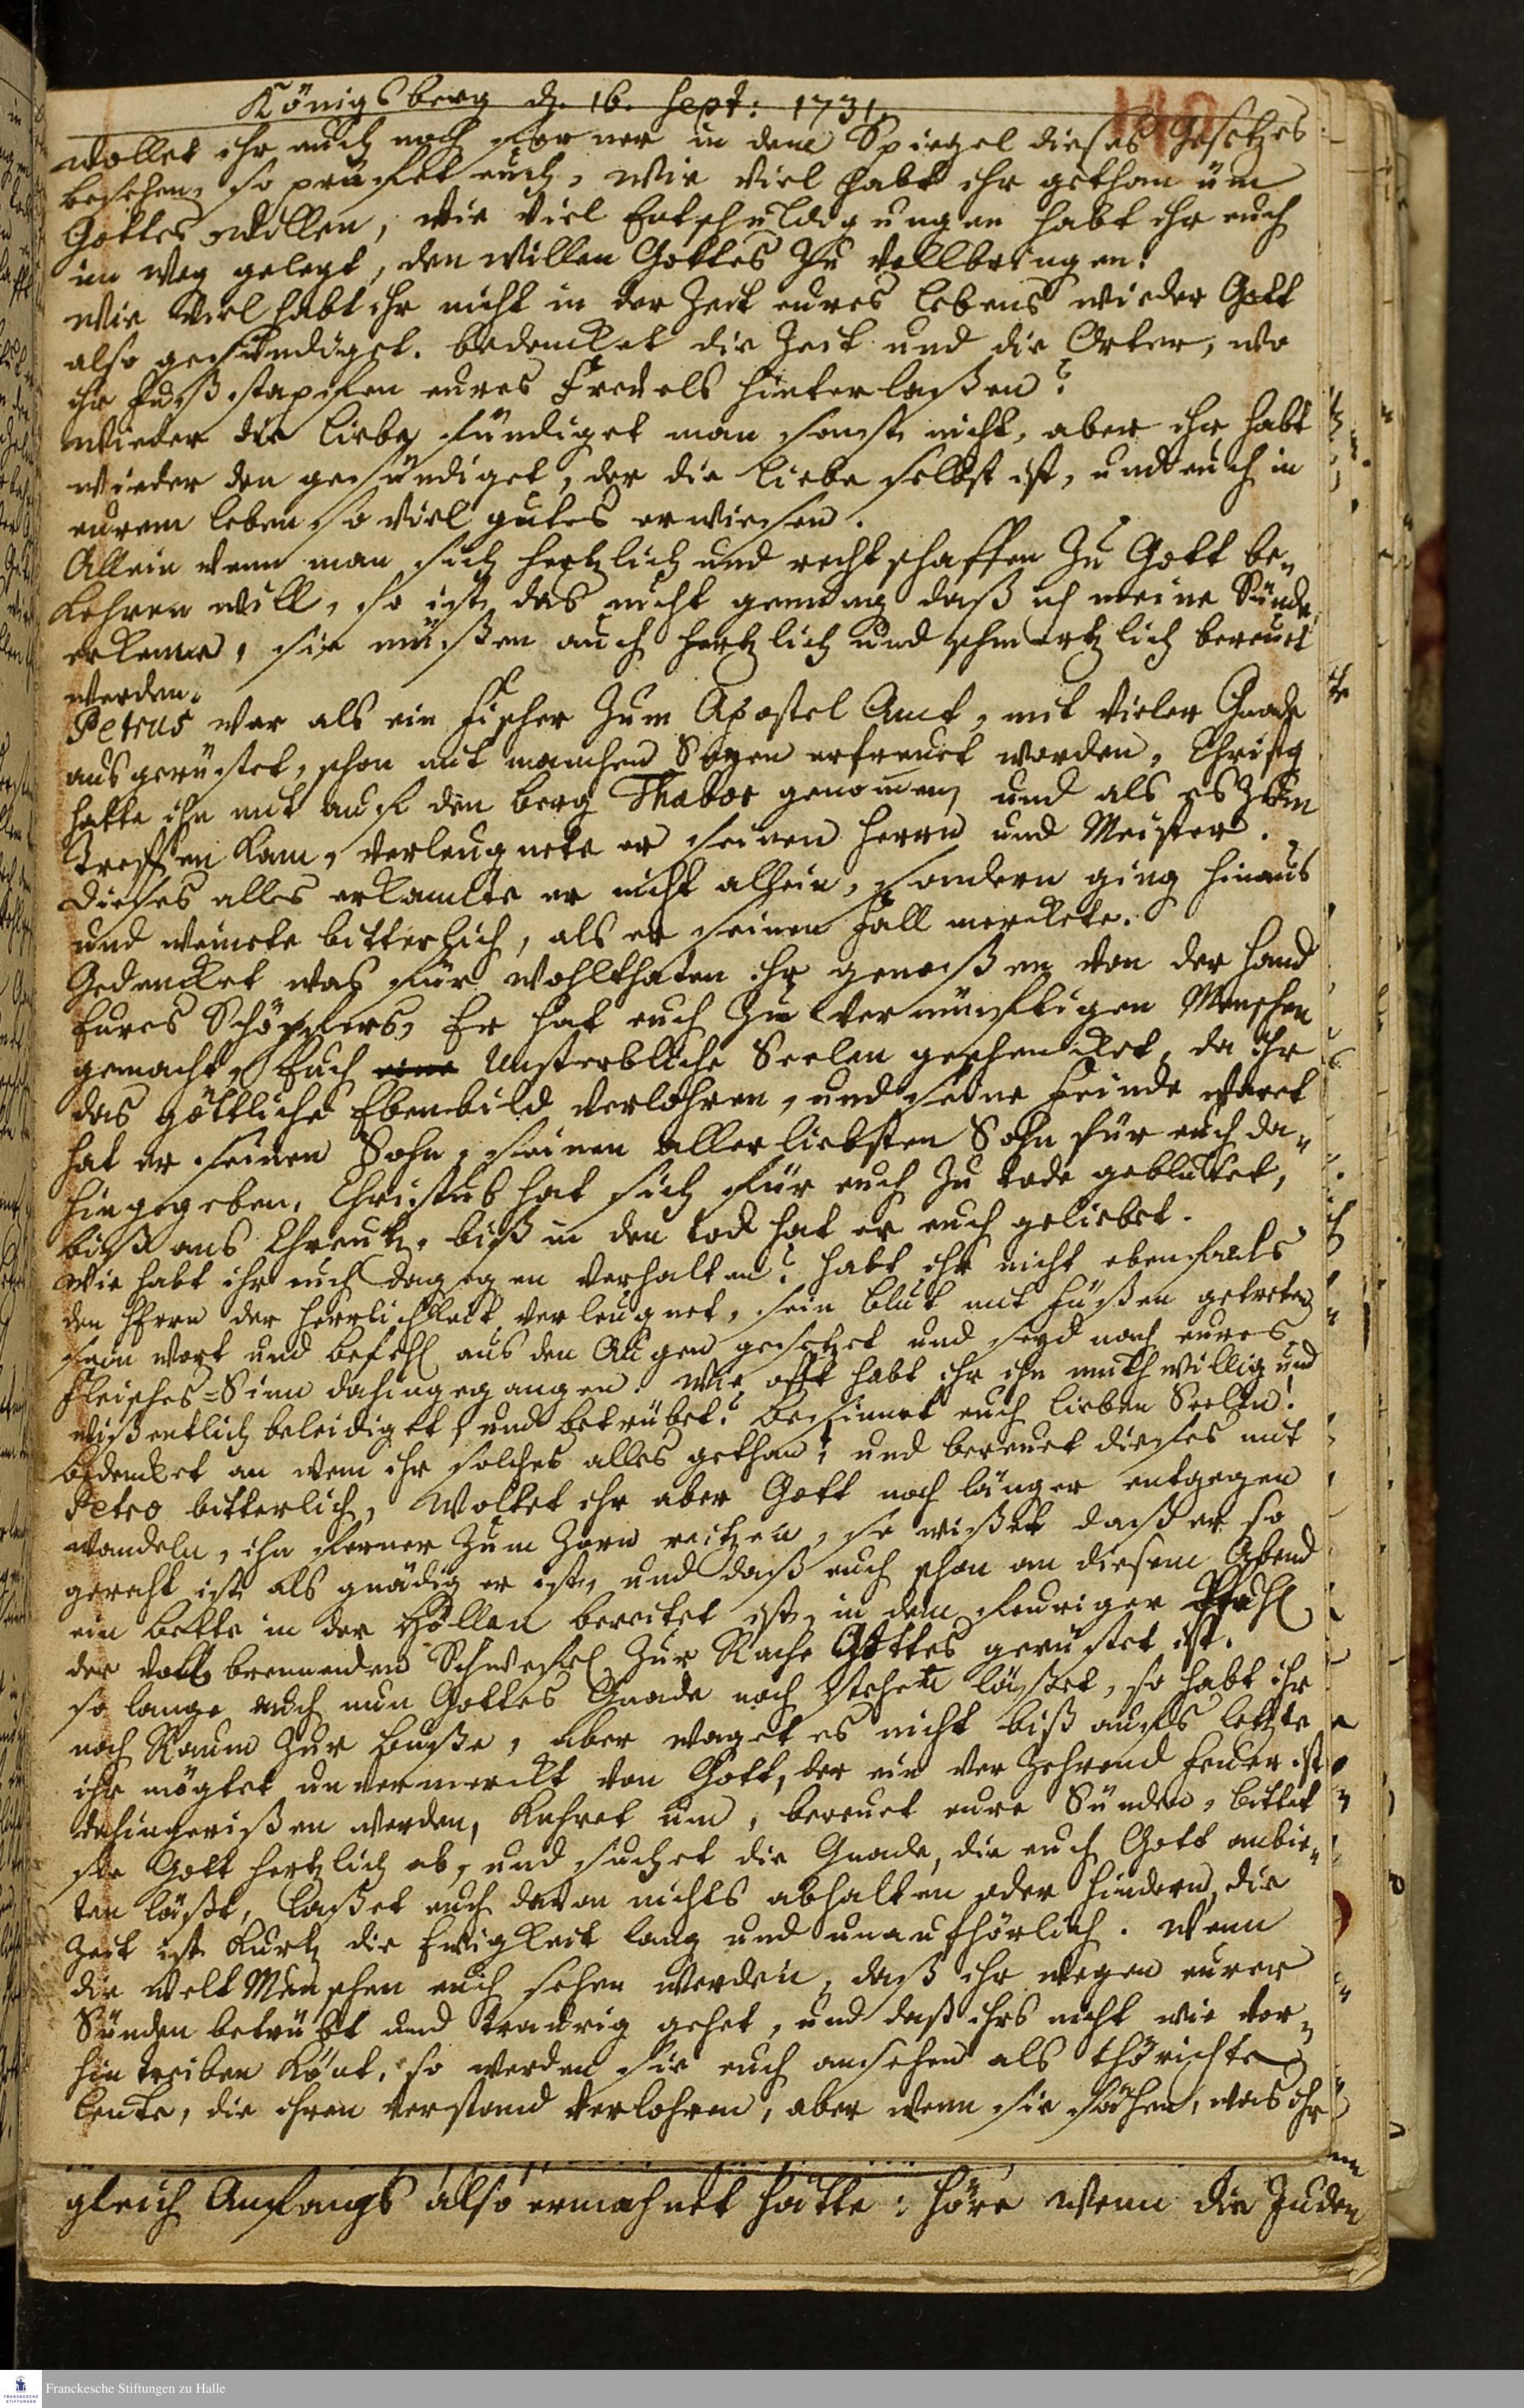 Königsberg d. 16. Sept: 1731.
wollet ihr euch noch ferner in dem Spiegel dieses Gesetzes
besehen, so prüfet euch, wie viel habt ihr gethan üm
Gottes Willen, wie viel Entschuldigungen habt ihr euch
im Weg gelegt, den Willen Gottes zu vollbringen.
Wie viel habt ihr nicht in der Zeit eures Lebens wieder Gott
also gesündiget. bedencket die Zeit und die Örter, wo
ihr Fußstapffen eures Frevels hinterlaßen?
Wieder die Liebe sündiget man sonst nicht, aber ihr habt
wieder den gesündiget, der die Liebe selbst ist, und euch in
eurem Leben so viel gutes erwiesen.
Allein wenn man sich hertzlich und rechtschaffen zu Gott be„
kehren will, so ist das nicht genung daß ich meine Sünde
erkenne, sie müßen auch hertzlich und schmertzlich bereuet
werden.
Petrus war als ein Fischer zum Apostel Amt, mit vieler Gnade
ausgerüstet, schon mit manchen Seegen erfreuet worden, Christus
hatte ihn mit auf den berg Thabor genommen und als es zum
treffen kam, verleugnete er seinen Herrn und Meister.
Dieses alles erkannte er nicht allein, sondern ging hinaus
und weinete bitterlich, als er seinen Fall merckete.
Gedencket was für Wohlthaten ihr genoßen von der Hand
Eures Schöpfers, Er hat euch zu vernünfftigen Menschen
gemacht, Euch eine Unsterbliche Seelen geschencket, da ihr
das göttliche Ebenbild verlohren, und seine Feinde waret
hat er seinen Sohn, seinen allerliebsten Sohn für euch da„
hingegeben, Christus hat sich für euch zu tode geblutet,
biß ans Creutz, biß in den Tod hat er euch geliebet.
Wie habt ihr euch dagegen verhalten? habt ihr nicht ebenfals
den Herrn der Herrlichkeit verleugnet, sein blut mit Füßen getreten
sein Wort und befehl aus den Augen gesetzet und seyd nach eures
Fleisches=Sinn dahingegangen. Wie offt habt ihr ihn muthwillig und
wißentlich beleidiget, und betrübet? besinnet euch lieben Seelen!
bedencket an wem ihr solches alles gethan, und bereuet dieses mit
Petro bitterlich, Woltet ihr aber Gott noch länger entgegen
wandeln, ihn ferner zum Zorn reitzen, so wißet daß er so
gerecht ist als gnädig er ist, und daß euch schon an diesem Abend
ein bette in der Höllen bereitet ist, in dem feuriger Pfuhl
der voll brennenden Schwefel zur Rache Gottes gerüstet ist.
so lange euch nun Gottes Gnade noch stehen läßet, so habt ihr
noch Raum zur buße, aber waget es nicht biß aufs letzte
ihr mögtet unvermerckt von Gott, der ein verzehrend Feuer ist
dahingerißen werden, kehret üm, bereuet eure Sünden, bittet
sie Gott hertzlich ab, und suchet die Gnade, die euch Gott anbie„
ten läßt, laßet euch davon nichts abhalten oder hindern, die
Zeit ist kurtz die Ewigkeit lang und unaufhörlich. Wenn
die Welt Menschen euch sehen werden, daß ihr wegen eurer
Sünden betrübt und traurig gehet, und daß ihrs nicht wie vor„
hin treiben könt, so werden sie euch ansehen als thörichte
Leute, die ihren Verstand verlohren, aber wenn sie sähen, was ihr
gleich Anfangs also ermahnet hatte: höre wenn die Juden
Franckesche Stiftungen zu Halle